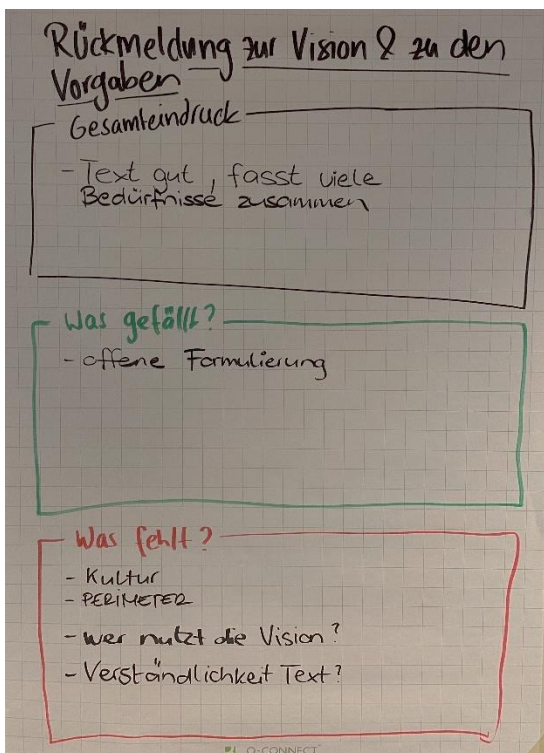 Rückmeldung zur Vision & zu den
Vorgaben
Gesamteindruck
- Text gut, fasst viele
Bedürfnisse zusammen
Was gefällt?
- offene Formulierung
Was fehlt?
- Kultur
- PERIMETER
- wer nutzt die Vision?
- Verständlichkeit Text?
Q-CONNECT